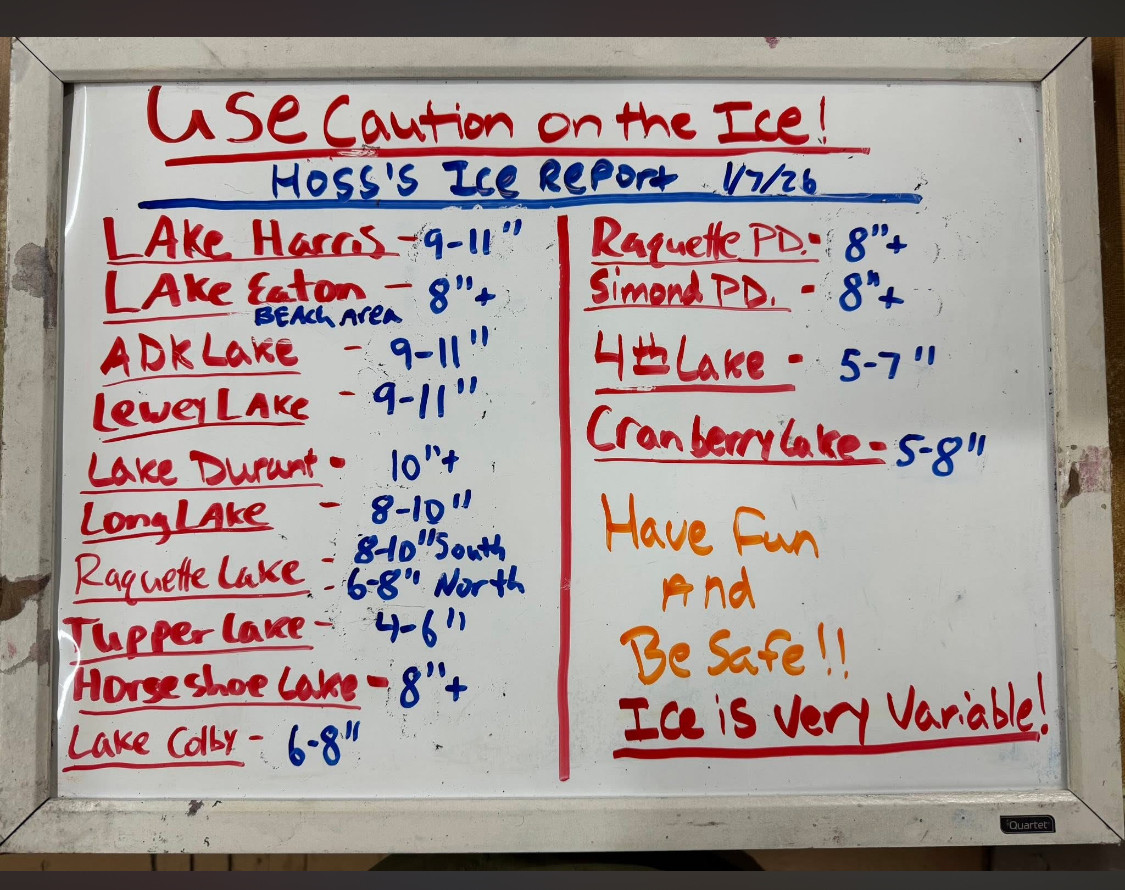 Use Caution on the Ice!
Hoss's Ice Report 1/7/26
LAke Harris - 9-11"
LAke Eaton - 8"+
BEAch Area
ADK Lake - 9-11"
Lewey LAke - 9-11"
Lake Durant - 10"+
Long LAke - 8-10"
Raquette Lake - 8-10" South
- 6-8" North
Tupper Lake - 4-6"
Horseshoe Lake - 8"+
Lake Colby - 6-8"
Raquette PD. - 8"+
Simond PD. - 8"+
4th Lake - 5-7"
Cranberry Lake - 5-8"
Have Fun
And
Be Safe!!
Ice is Very Variable!
Quartet